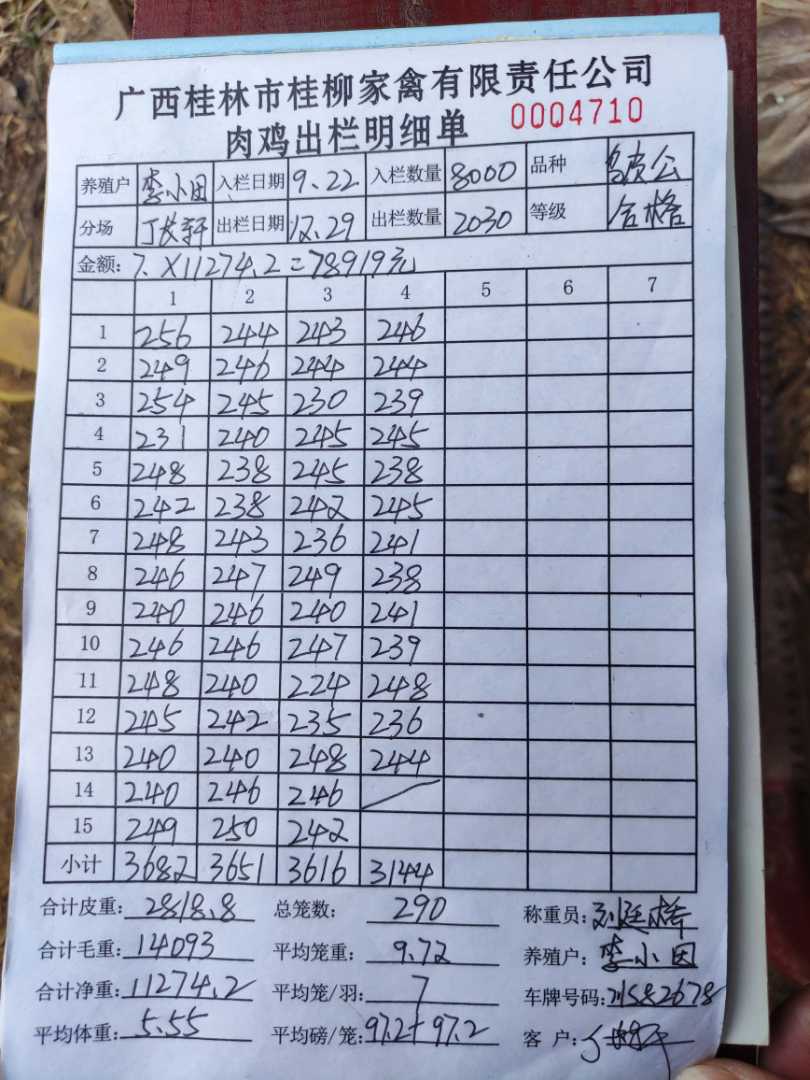 广西桂林市桂柳家禽有限责任公司
肉鸡出栏明细单 0004710
养殖户 李小团 入栏日期 9.22 入栏数量 8000 品种 乌皮公
分场 出栏日期 12.29 出栏数量 2030 等级 合格
金额: 7.×11274.2=78919元
1 2 3 4 5 6 7
1 256 244 243 246
2 249 246 244 244
3 254 245 230 239
4 231 240 245 245
5 248 238 245 238
6 242 238 242 245
7 248 243 236 241
8 246 247 249 238
9 240 246 240 241
10 246 246 247 239
11 248 240 224 248
12 245 242 235 236
13 240 240 248 244
14 240 246 246
15 249 250 242
小计 3682 3651 3616 3144
合计皮重: 2818.8 总笼数: 290 称重员:
合计毛重: 14093 平均笼重: 9.72 养殖户: 李小团
合计净重: 11274.2 平均笼/羽: 7 车牌号码:
平均体重: 5.55 平均磅/笼: 97.2+97.2 客 户: